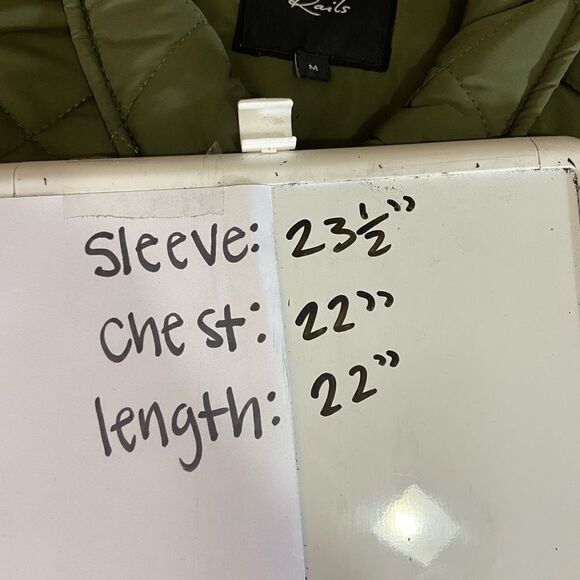 Rails
M
sleeve: 23½"
chest: 22"
length: 22"